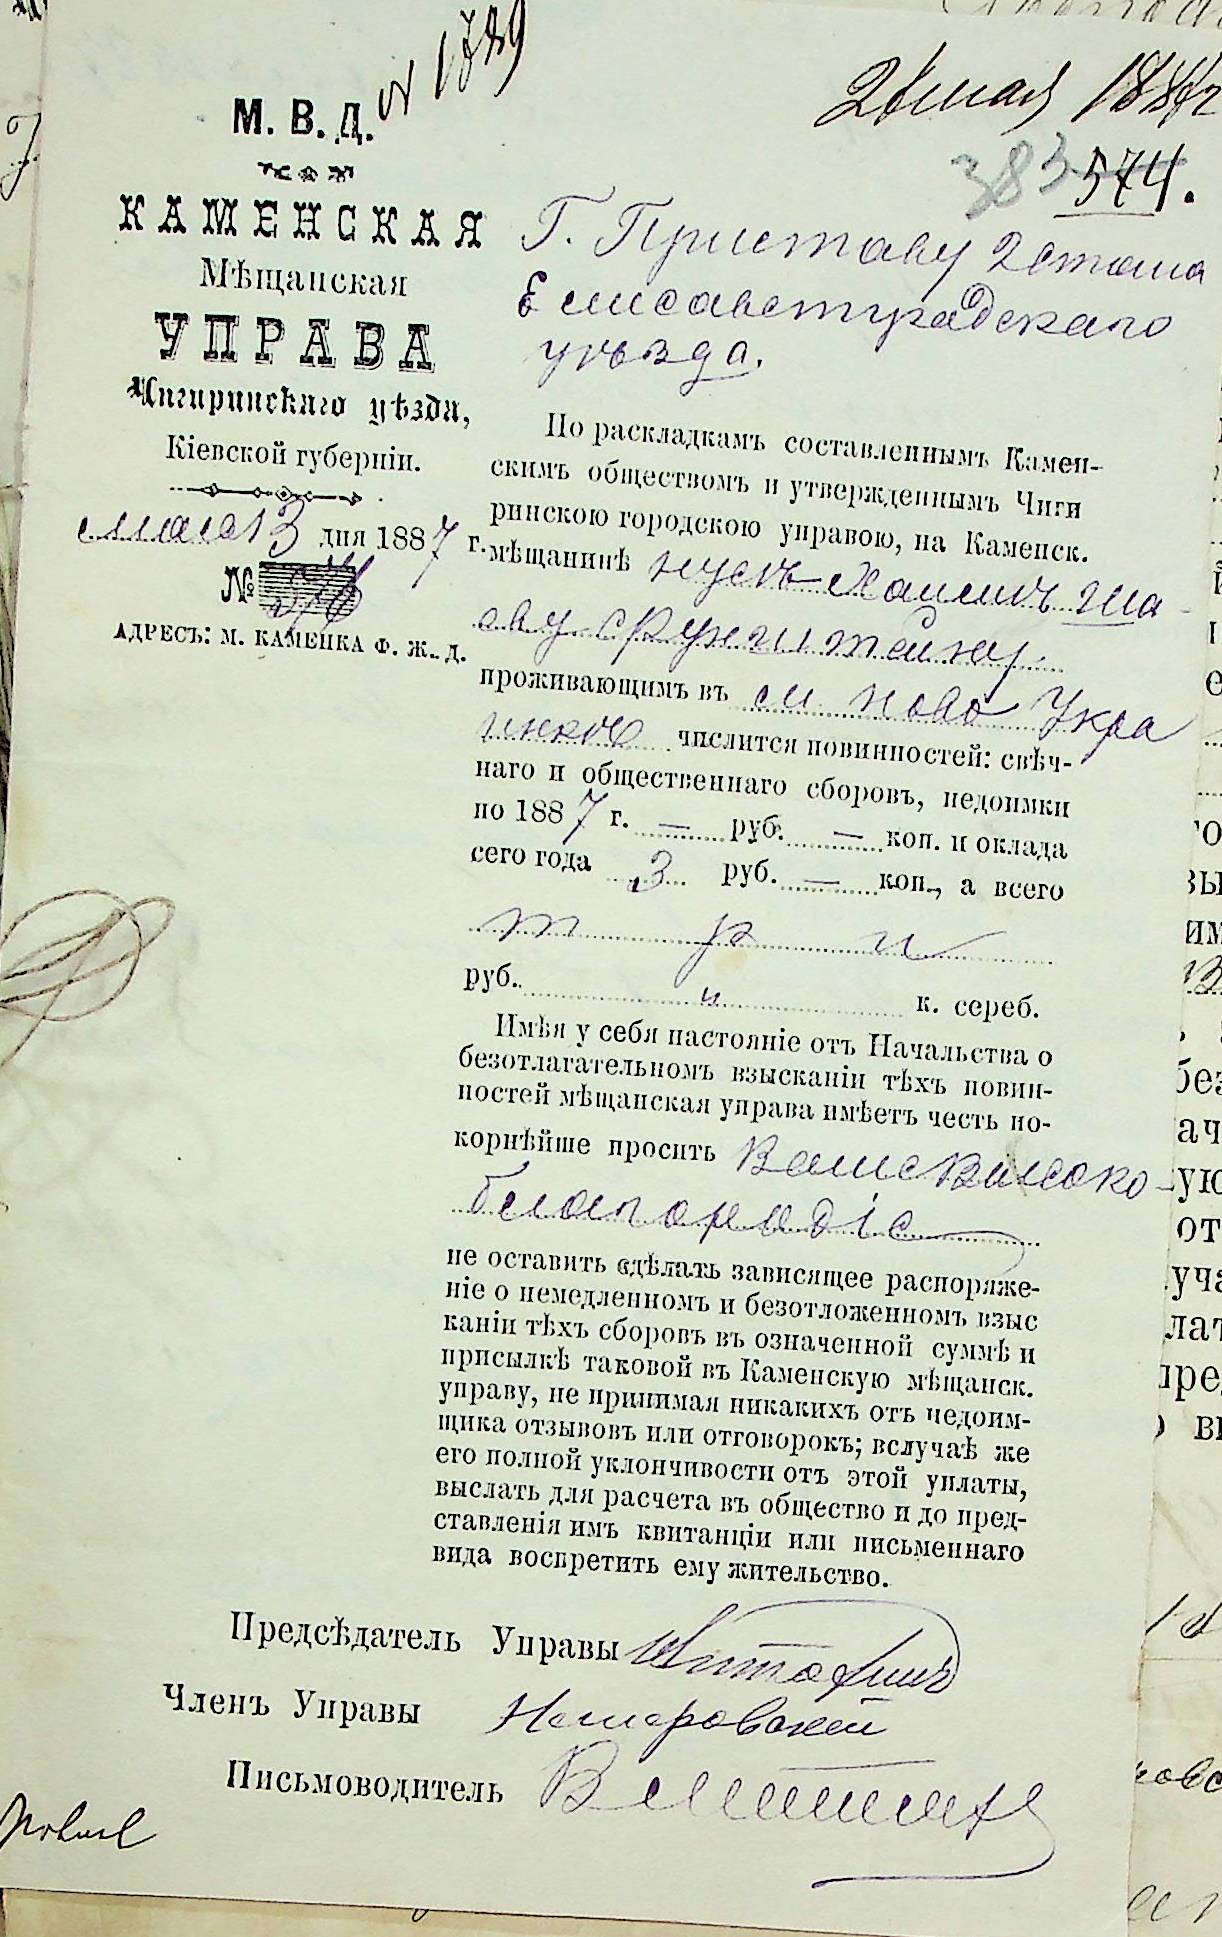 № 1789
М. В. Д.
КАМЕНСКАЯ
Мѣщанская
УПРАВА
Чигиринскаго уѣзда,
Кіевской губерніи.
мая 13 дня 1887 г.
№ 576
АДРЕСЪ: М. КАМЕНКА Ф. Ж. Д.
мая 1887 г
383 574.
Г. Приставу 2 стана
Елисаветградскаго
уѣзда.
По раскладкамъ составленнымъ Камен-
скимъ обществомъ и утвержденнымъ Чиги
ринскою городскою управою, на Каменск.
мѣщанинѣ
проживающимъ въ м. ново Укра
инкѣ числится повинностей: свѣч-
наго и общественнаго сборовъ, недоимки
по 1887 г. — руб. — коп. и оклада
сего года 3 руб. — коп., а всего
три
руб. " к. сереб.
Имѣя у себя настояніе отъ Начальства о
безотлагательномъ взысканіи тѣхъ повин-
ностей мѣщанская управа имѣетъ честь по-
корнѣйше просить Ваше Высоко-
благородіе
не оставить сдѣлать зависящее распоряже-
ніе о немедленномъ и безотложенномъ взыс
каніи тѣхъ сборовъ въ означенной суммѣ и
присылкѣ таковой въ Каменскую мѣщанск.
управу, не принимая никакихъ отъ недоим-
щика отзывовъ или отговорокъ; вслучаѣ же
его полной уклончивости отъ этой уплаты,
выслать для расчета въ общество и до пред-
ставленія имъ квитанціи или письменнаго
вида воспретить ему жительство.
Предсѣдатель Управы
Членъ Управы
Письмоводитель